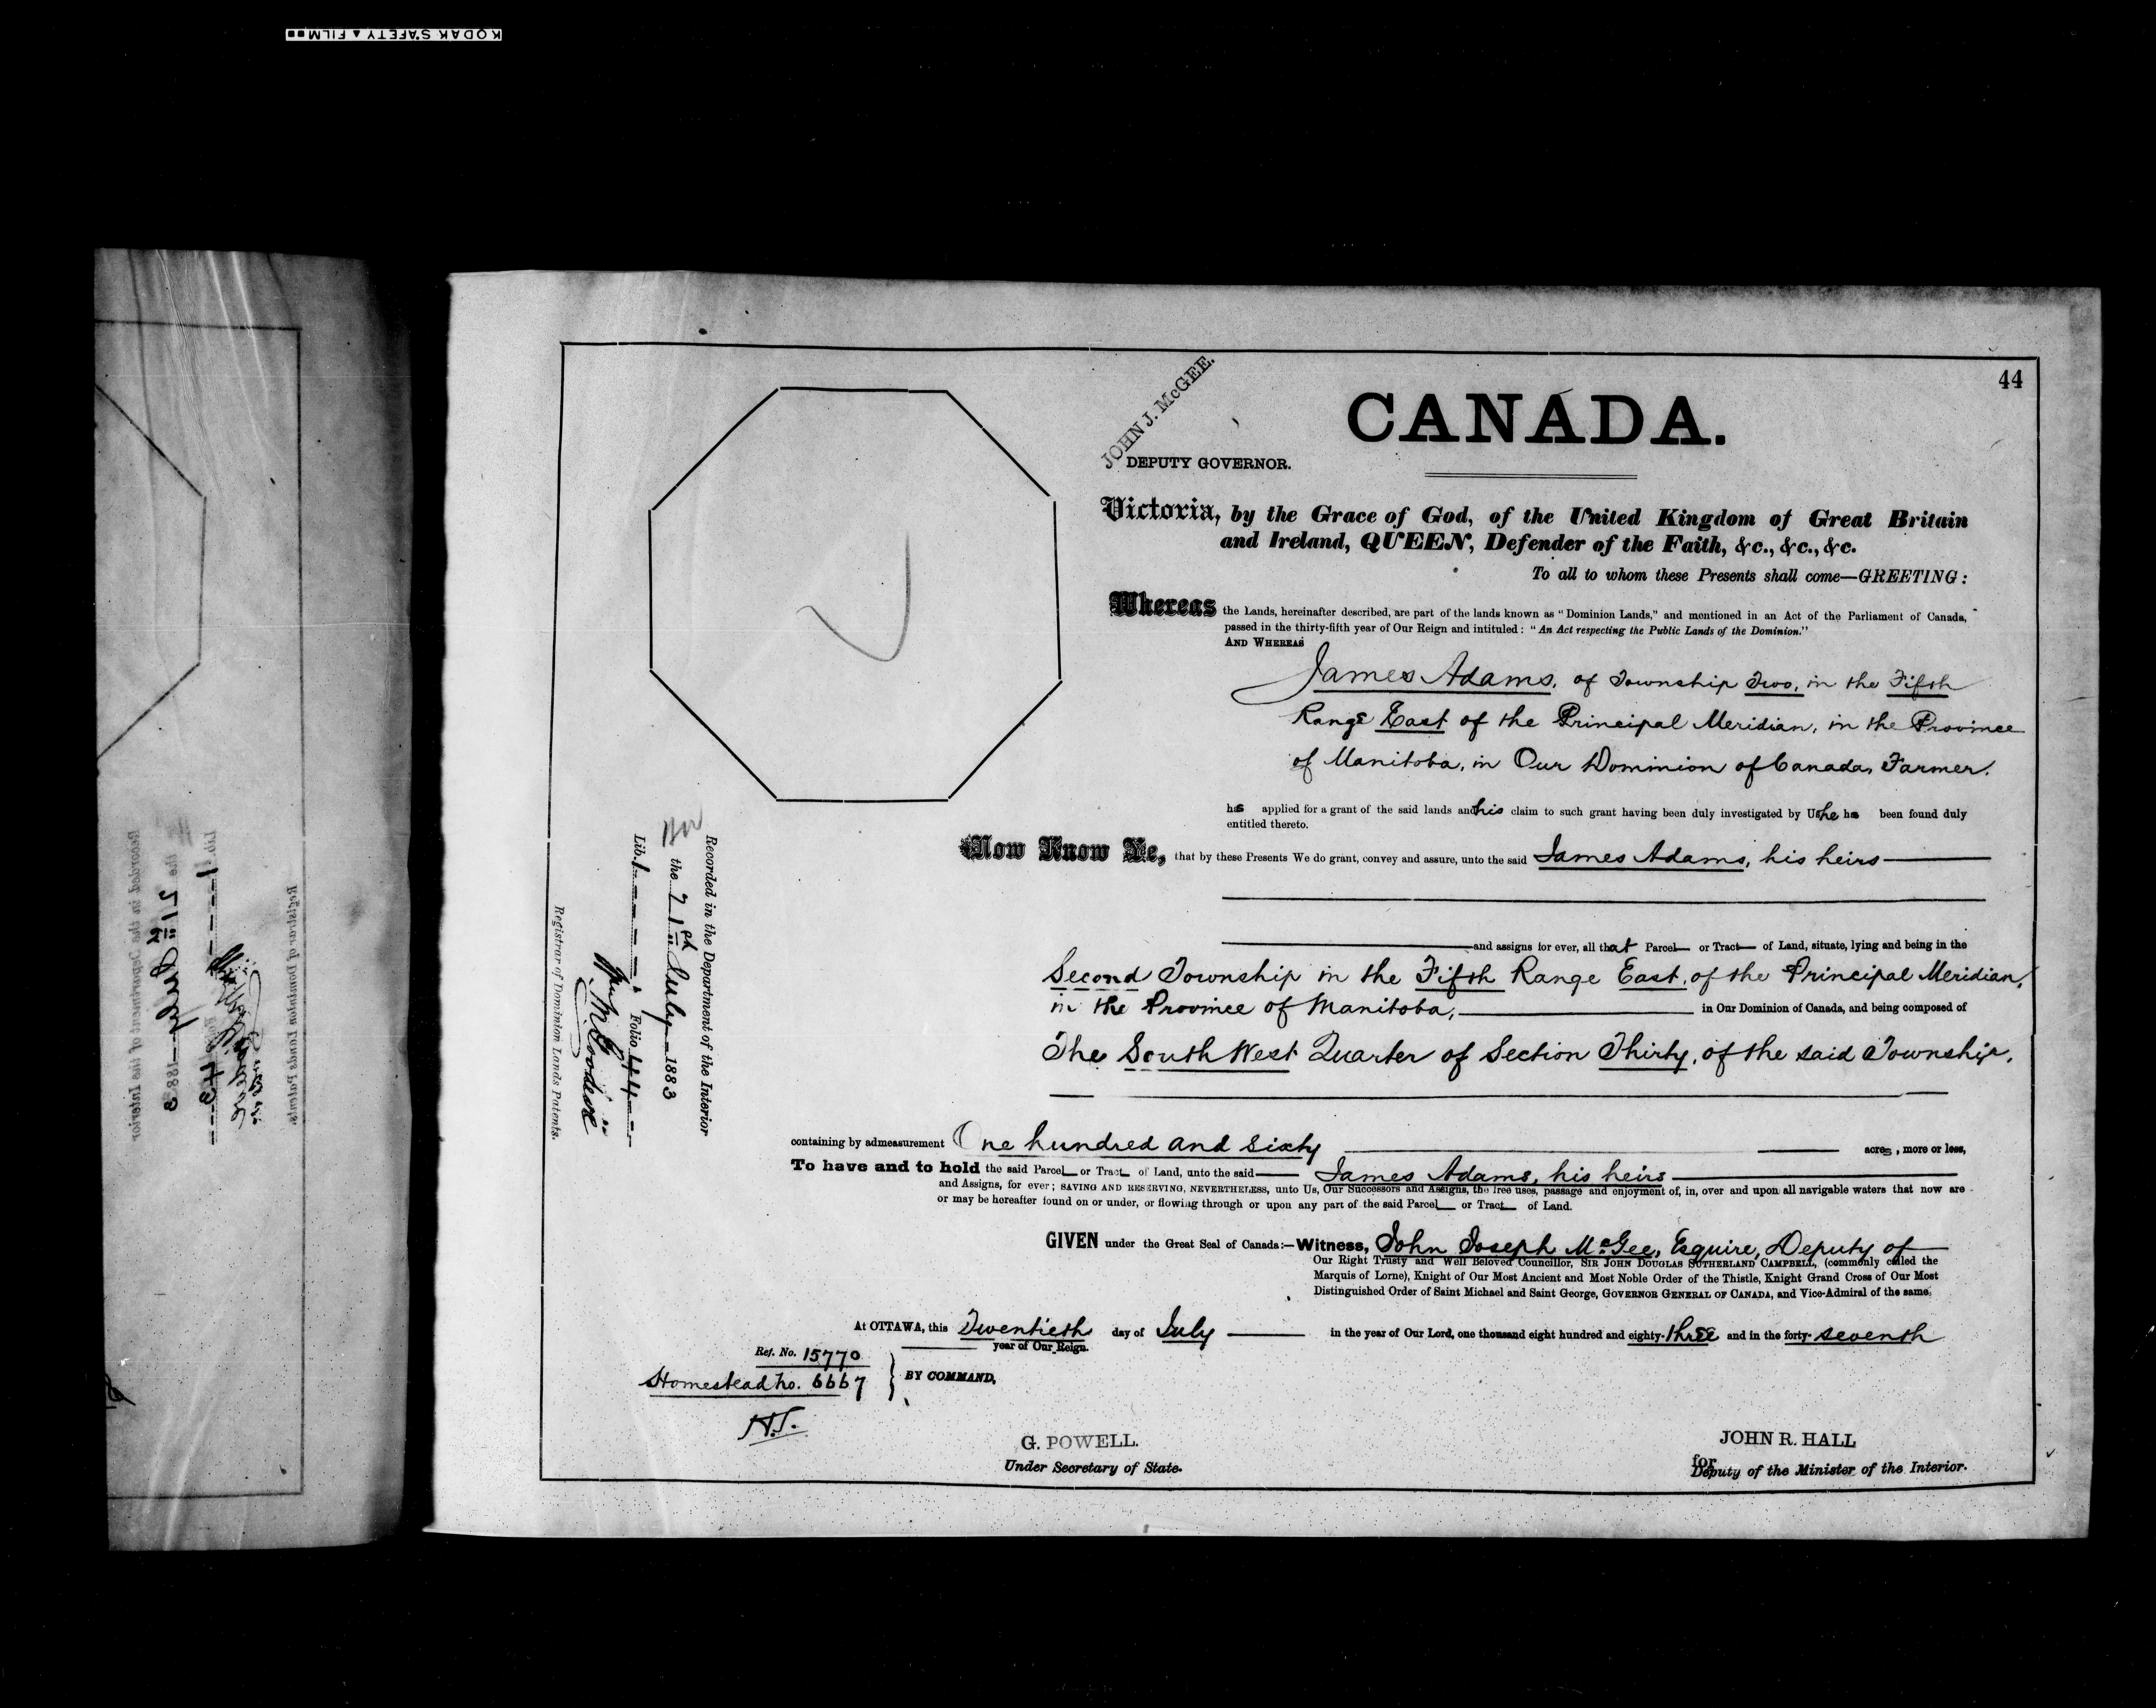 KODAK SAFETY ▲ FILM
44
CANADA.
JOHN J. McGEE.
DEPUTY GOVERNOR.
Victoria, by the Grace of God, of the United Kingdom of Great Britain
and Ireland, QUEEN, Defender of the Faith, &c., &c., &c.
To all to whom these Presents shall come—GREETING:
Whereas the Lands, hereinafter described, are part of the lands known as "Dominion Lands," and mentioned in an Act of the Parliament of Canada,
passed in the thirty-fifth year of Our Reign and intituled: "An Act respecting the Public Lands of the Dominion."
AND WHEREAS
James Adams, of Township Two, in the Fifth
Range East of the Principal Meridian, in the Province
of Manitoba, in Our Dominion of Canada, Farmer.
has applied for a grant of the said lands and his claim to such grant having been duly investigated by Us he has been found duly
entitled thereto.
Now Know Ye, that by these Presents We do grant, convey and assure, unto the said James Adams, his heirs
and assigns for ever, all that Parcel or Tract of Land, situate, lying and being in the
Second Township in the Fifth Range East, of the Principal Meridian,
in the Province of Manitoba, in Our Dominion of Canada, and being composed of
The South West Quarter of Section Thirty, of the said Township.
containing by admeasurement One hundred and sixty acres, more or less,
To have and to hold the said Parcel or Tract of Land, unto the said James Adams, his heirs
and Assigns, for ever; SAVING AND RESERVING, NEVERTHELESS, unto Us, Our Successors and Assigns, the free uses, passage and enjoyment of, in, over and upon all navigable waters that now are
or may be hereafter found on or under, or flowing through or upon any part of the said Parcel or Tract of Land.
GIVEN under the Great Seal of Canada:—Witness, John Joseph McGee, Esquire, Deputy of
Our Right Trusty and Well Beloved Councillor, SIR JOHN DOUGLAS SUTHERLAND CAMPBELL, (commonly called the
Marquis of Lorne), Knight of Our Most Ancient and Most Noble Order of the Thistle, Knight Grand Cross of Our Most
Distinguished Order of Saint Michael and Saint George, GOVERNOR GENERAL OF CANADA, and Vice-Admiral of the same.
At OTTAWA, this Twentieth day of July in the year of Our Lord, one thousand eight hundred and eighty-three and in the forty-seventh
year of Our Reign.
Ref. No. 15770
Homestead No. 6667
BY COMMAND,
H.T.
G. POWELL.
Under Secretary of State.
JOHN R. HALL
for
Deputy of the Minister of the Interior.
Recorded in the Department of the Interior
the 21st July 1883
Lib. 1 Folio 44
Registrar of Dominion Lands Patents.
Recorded in the Department of the Interior
the 21st July 1883
Lib. 1
Registrar of Dominion Lands Patents.